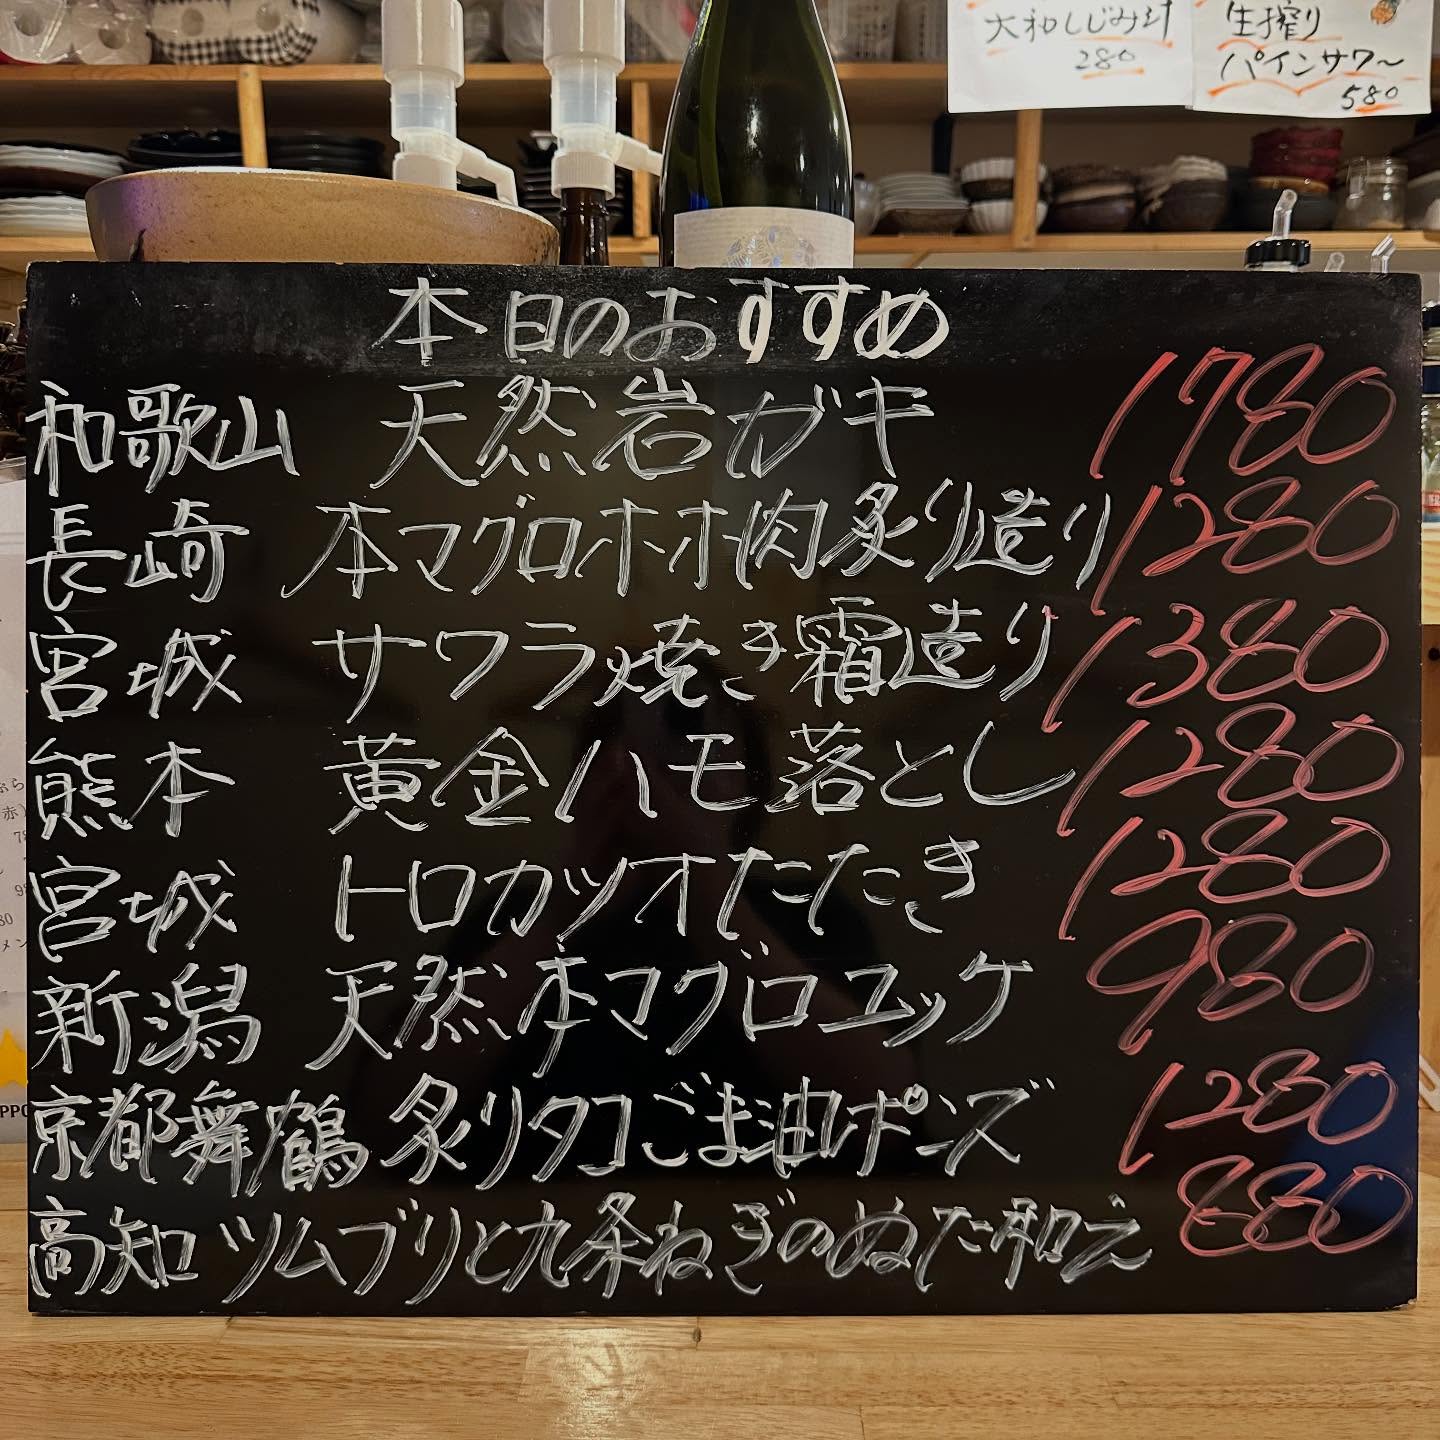 大和しじみ汁
280
生搾り
パインサワ〜
580
本日のおすすめ
和歌山 天然岩ガキ 1780
長崎 本マグロホホ肉炙り造り 1280
宮城 サワラ焼き霜造り 1380
熊本 黄金ハモ落とし 1280
宮城 トロカツオたたき 1280
新潟 天然本マグロユッケ 980
京都舞鶴 炙りタコごま油ポンズ 1280
高知 ツムブリと九条ねぎのぬた和え 880